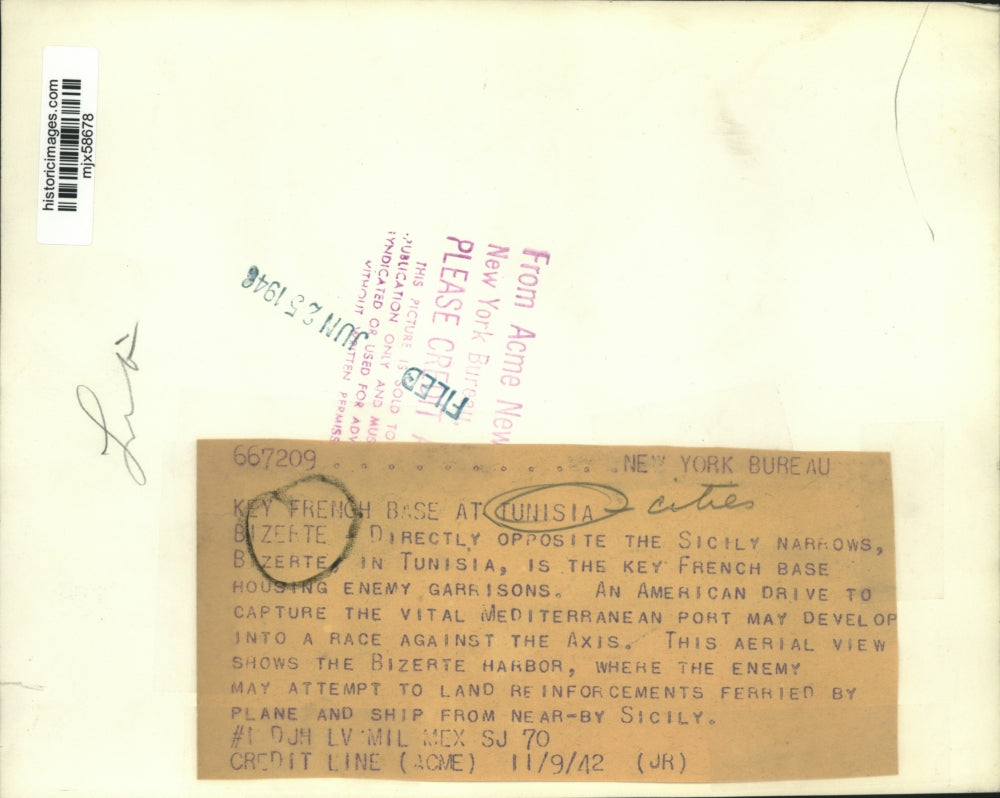 historicimages.com
mjx58678
From Acme New
New York Bureau
PLEASE CREDIT A
THIS PICTURE IS SOLD TO
PUBLICATION ONLY AND MUS
SYNDICATED OR USED FOR ADV
WITHOUT WRITTEN PERMISS
FILED
JUN 25 1946
667209 . . . . . . . . . . . NEW YORK BUREAU
cities
KEY FRENCH BASE AT TUNISIA
BIZERTE DIRECTLY OPPOSITE THE SICILY NARROWS,
BIZERTE, IN TUNISIA, IS THE KEY FRENCH BASE
HOUSING ENEMY GARRISONS. AN AMERICAN DRIVE TO
CAPTURE THE VITAL MEDITERRANEAN PORT MAY DEVELOP
INTO A RACE AGAINST THE AXIS. THIS AERIAL VIEW
SHOWS THE BIZERTE HARBOR, WHERE THE ENEMY
MAY ATTEMPT TO LAND REINFORCEMENTS FERRIED BY
PLANE AND SHIP FROM NEAR-BY SICILY.
#1 DJH LV MIL MEX SJ 70
CREDIT LINE (ACME) 11/9/42 (JR)